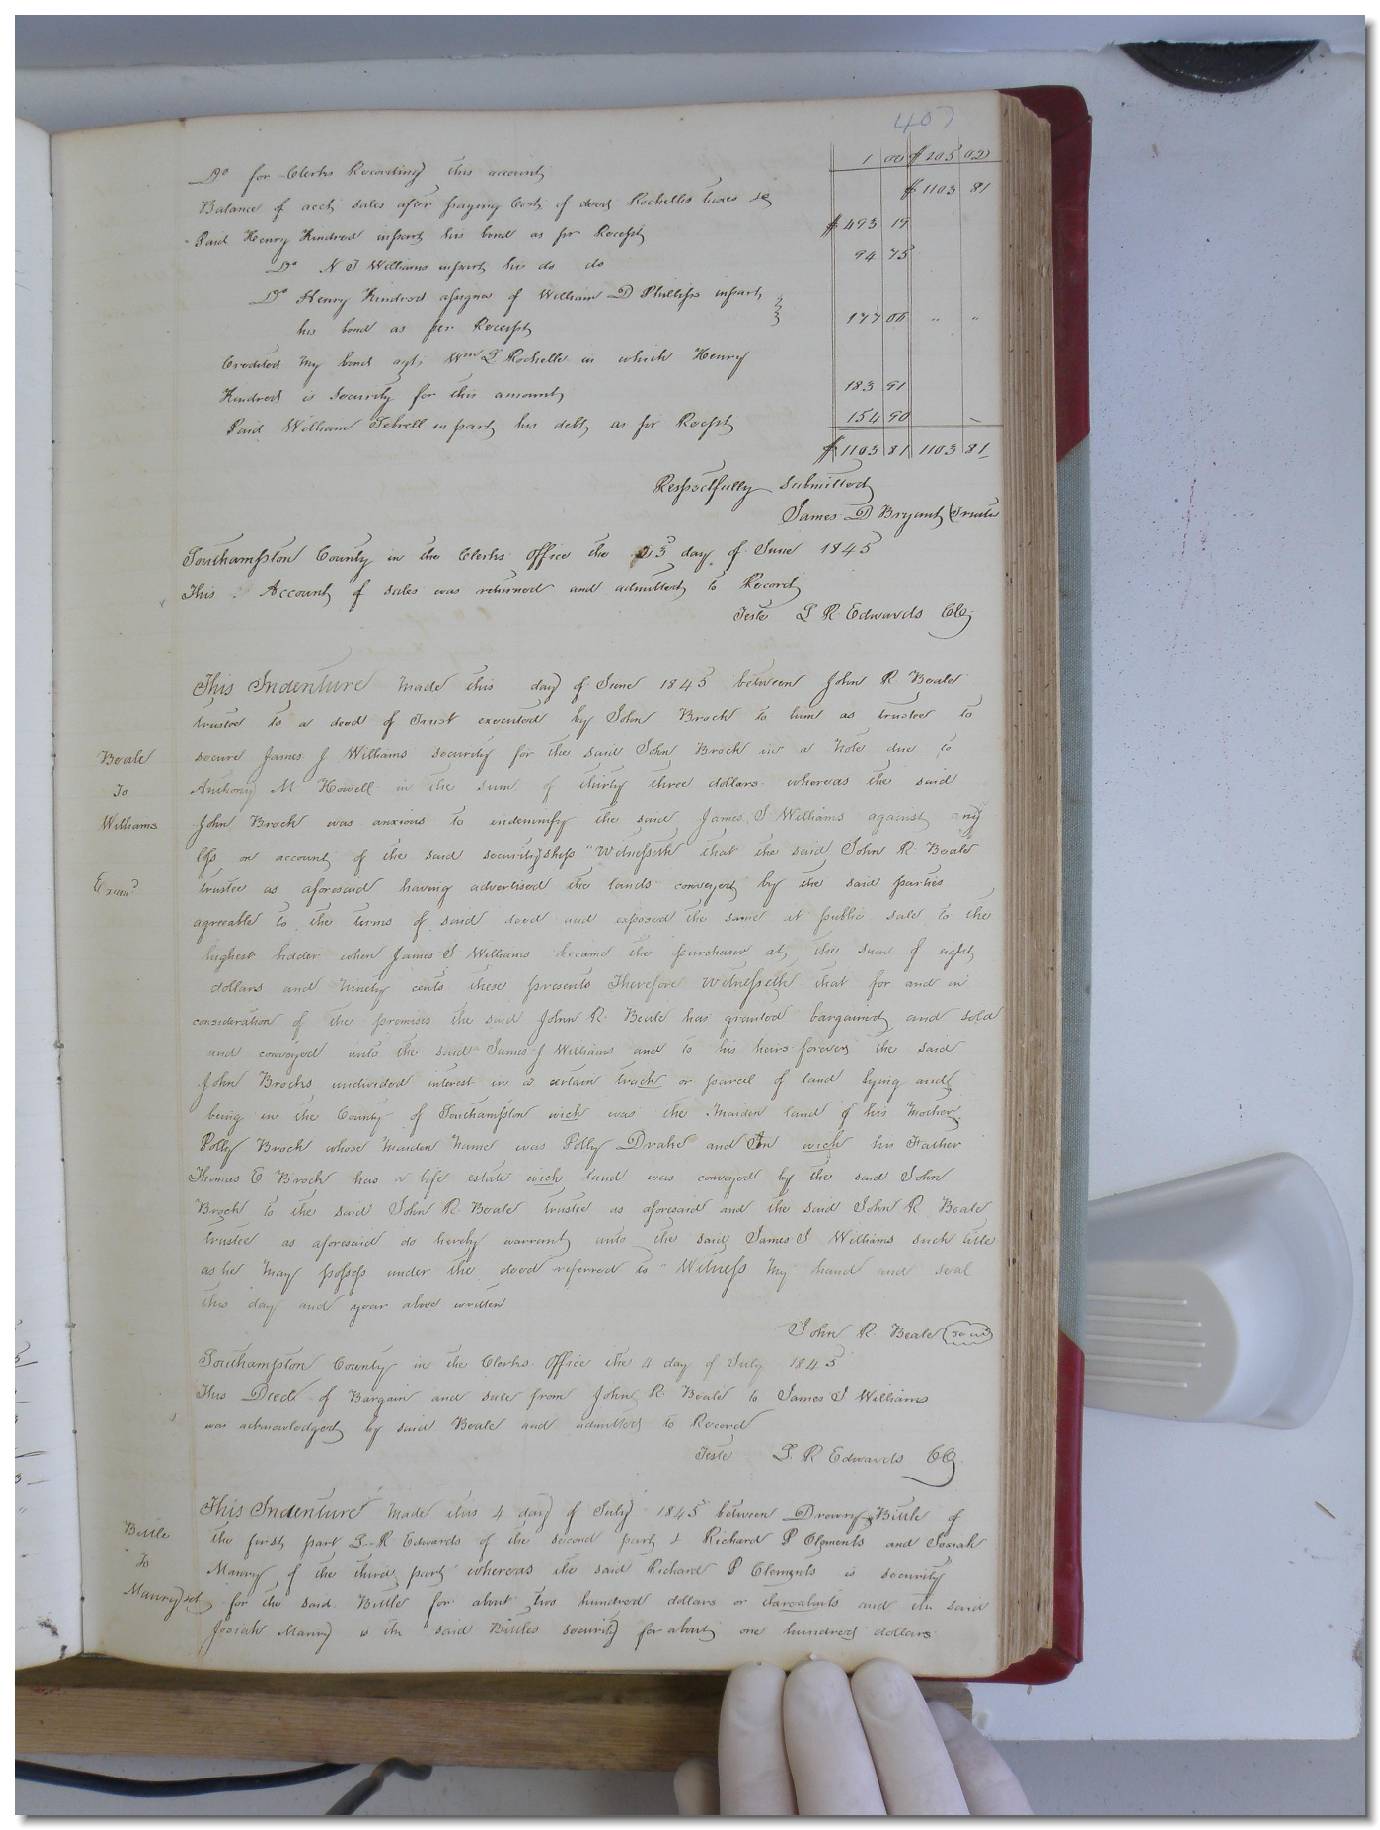 407
Do for Clerks Recording this account 1 00 $ 205 02
Balance of acct sales after paying Cost of deed Rochelles taxes &c $ 1103 81
Paid Henry Kindred in part his bond as pr Receipt $ 493 19
Do N J Williams in part his do do 94 75
Do Henry Kindred assignee of William D Phillips in part
his bond as per Receipt 177 06 " "
Credited my bond agt Wm L Rochelle in which Henry
Kindred is security for this amount 183 91
Paid William Tebrell in part his debt as pr Receipt 154 90 -
$ 1103 81 1103 81
Respectfully Submitted
James D Bryant Trustee
Southampton County in the Clerks Office the 23 day of June 1845
This Account of sales was returned and admitted to Record
Teste L R Edwards Clk
This Indenture made this day of June 1845 between John R Beale
trustee to a deed of Trust executed by John Brock to him as trustee to
Beale secure James J Williams security for the said John Brock in a note due to
To Anthony M Howell in the sum of thirty three dollars whereas the said
Williams John Brock was anxious to indemnify the said James J Williams against any
loss on account of the said securityship "Witnesseth that the said John R Beale
Examd trustee as aforesaid having advertised the lands conveyed by the said parties
agreeable to the terms of said deed and exposed the same at public sale to the
highest bidder when James J Williams became the purchaser at the sum of eighty
dollars and ninety cents these presents Therefore Witnesseth that for and in
consideration of the premises the said John R. Beale has granted bargained and sold
and conveyed unto the said James J Williams and to his heirs forever the said
John Brocks undivided interest in a certain track or parcel of land lying and
being in the County of Southampton wich was the maiden land of his Mother
Polly Brock whose maiden name was Polly Drake and In wich his Father
Thomas E Brock has a life estate wich land was conveyed by the said John
Brock to the said John R. Beale trustee as aforesaid and the said John R Beale
trustee as aforesaid do hereby warrant unto the said James J Williams such title
as he may possess under the deed referred to" Witness my hand and seal
this day and year above written
John R. Beale Seal
Southampton County in the Clerks Office the 4 day of July 1845
This Deed of Bargain and sale from John R. Beale to James J Williams
was acknowledged by said Beale and admitted to Record
Teste L. R Edwards Clk
This Indenture made this 4 day of July 1845 between Drewry Bittle of
Bittle the first part L R Edwards of the second part & Richard P Clements and Josiah
To Manry of the third part whereas the said Richard P Clements is security
Manry &c for the said Bittle for about two hundred dollars or thereabouts and the said
Josiah Manry is the said Bittles security for about one hundred dollars